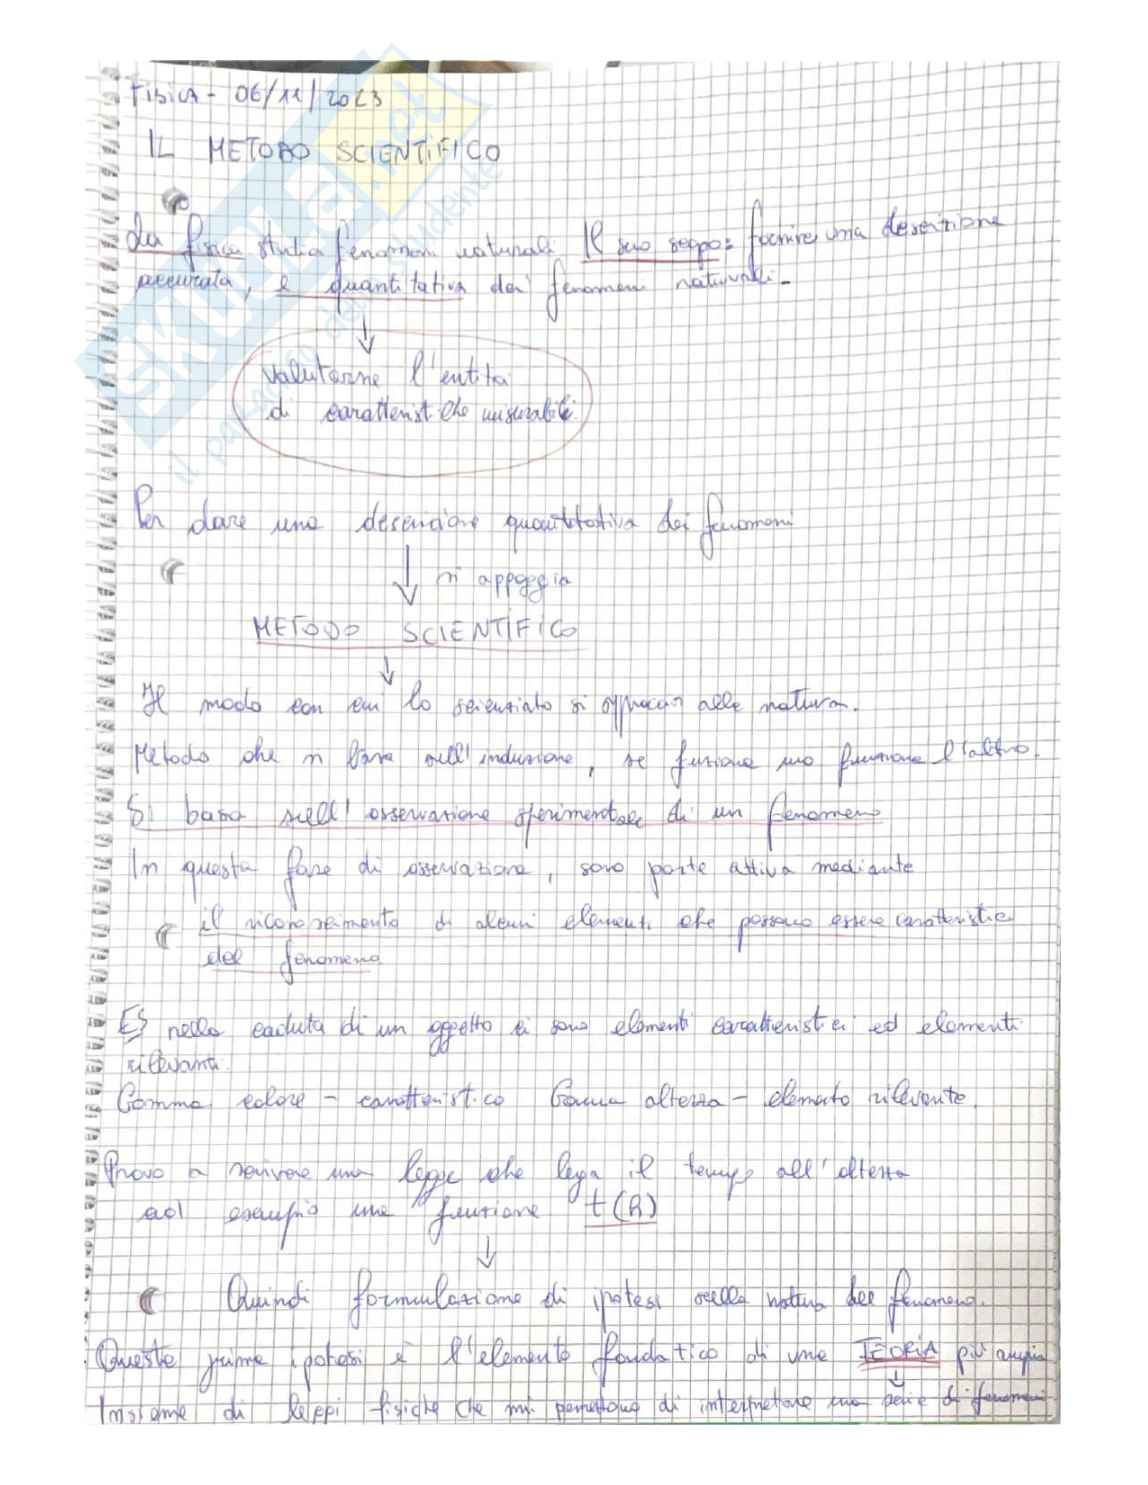 Fisica - 06/11/2023
IL METODO SCIENTIFICO
La fisica studia fenomeni naturali. Il suo scopo: fornire una descrizione
accurata, e quantitativa dei fenomeni naturali.
↓
Valutarne l'entità
di caratteristiche misurabili
Per dare una descrizione quantitativa dei fenomeni
↓ si appoggia
METODO SCIENTIFICO
↓
Il modo con cui lo scienziato si approccia alla natura.
Metodo che si basa sull'induzione, se funziona uno funziona l'altro.
Si basa sull'osservazione sperimentale di un fenomeno
In questa fase di osservazione, sono parte attiva mediante
il riconoscimento di alcuni elementi che possono essere caratteristici
del fenomeno
ES nella caduta di un oggetto ci sono elementi caratteristici ed elementi
rilevanti.
Gomma colore - caratteristico Gomma altezza - elemento rilevante.
Provo a scrivere una legge che lega il tempo all'altezza
ad esempio una funzione t(h)
↓
Quindi formulazione di ipotesi sulla natura del fenomeno.
Queste prime ipotesi è l'elemento fondatico di una TEORIA più ampia
↓
Insieme di leggi fisiche che mi permettono di interpretare una serie di fenomeni
SKUOLA.net
il paradiso dello studente